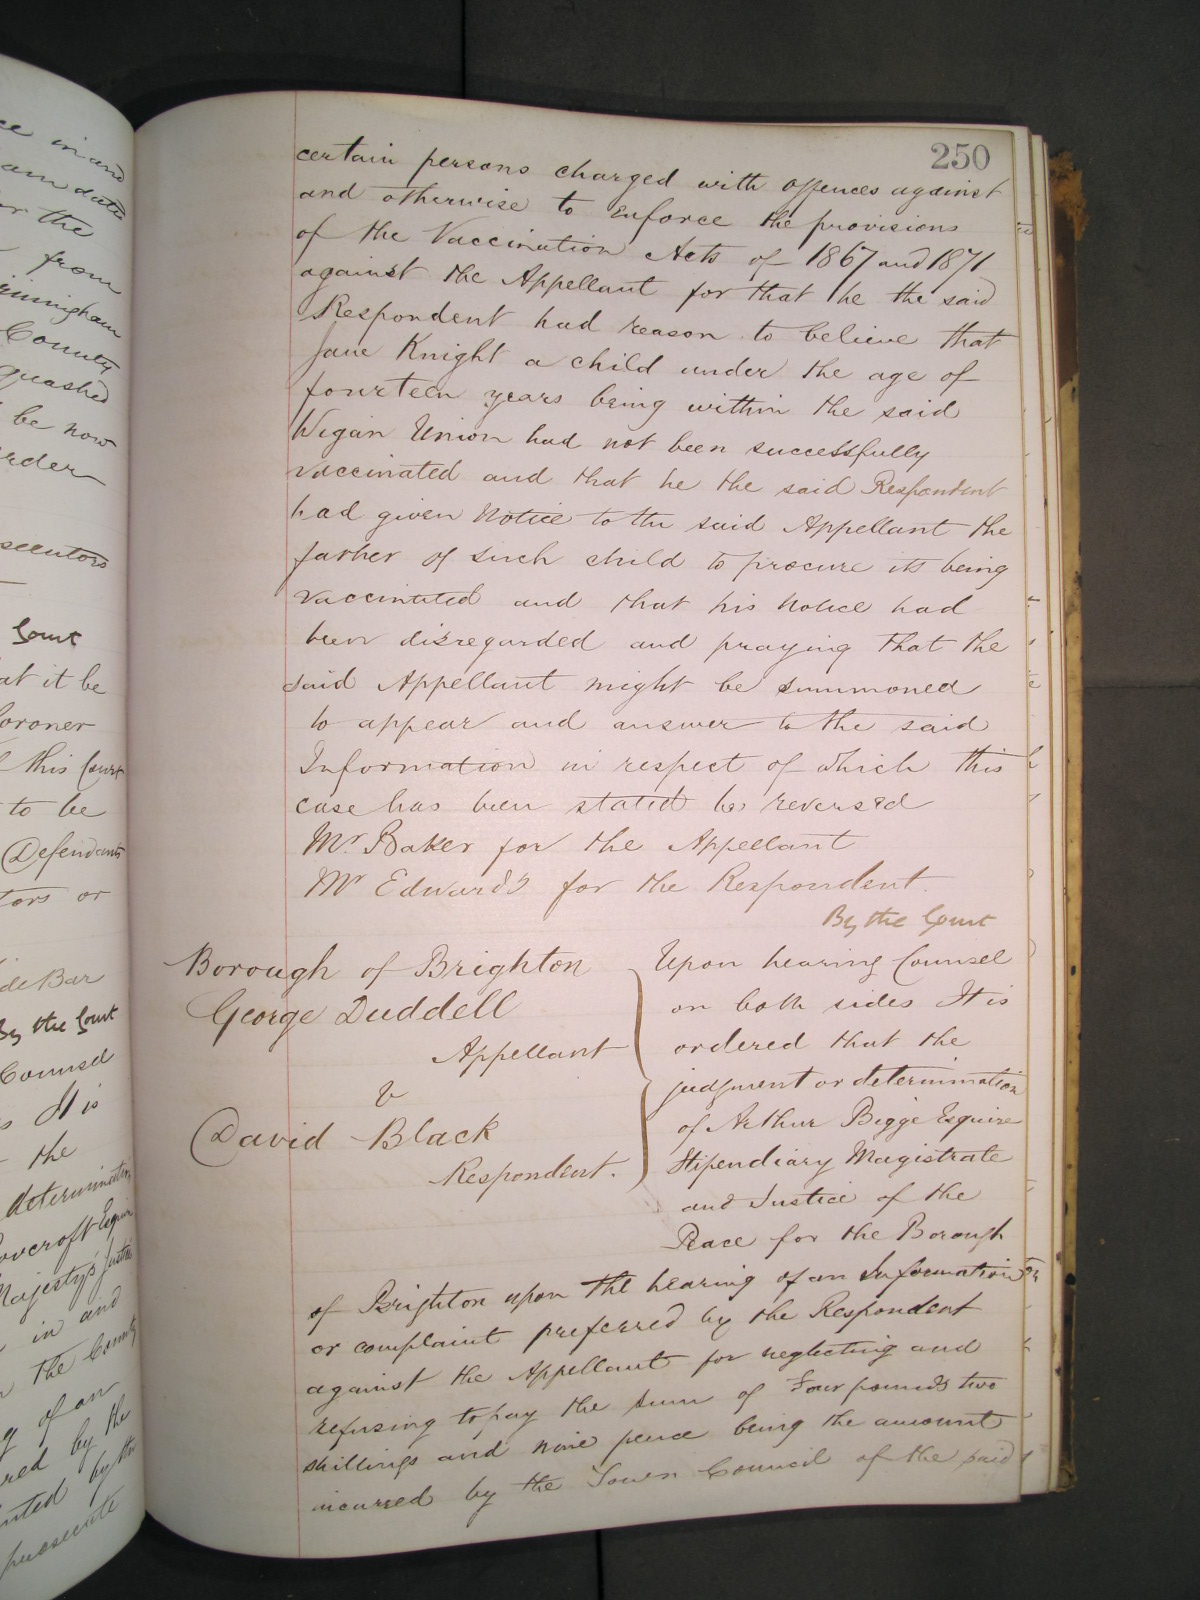 250
certain persons charged with offences against
and otherwise to enforce the provisions
of the Vaccination Acts of 1867 and 1871
against the Appellant for that he the said
Respondent had reason to believe that
Jane Knight a child under the age of
fourteen years being within the said
Wigan Union had not been successfully
vaccinated and that he the said Respondent
had given Notice to the said Appellant the
father of such child to procure its being
vaccinated and that his Notice had
been disregarded and praying that the
said Appellant might be summoned
to appear and answer to the said
Information in respect of which this
case has been stated be reversed
Mr. Baker for the Appellant
Mr Edwards for the Respondent.
By the Court
Borough of Brighton
George Duddell
Appellant
v
David Black
Respondent.
Upon hearing Counsel
on both sides It is
ordered that the
judgment or determination
of Arthur Bigge Esquire
Stipendiary Magistrate
and Justice of the
Peace for the Borough
of Brighton upon the hearing of an Information
or complaint preferred by the Respondent
against the Appellant for neglecting and
refusing to pay the sum of Four pounds two
shillings and nine pence being the amount
incurred by the Town Council of the said
ce in and
or the
from
County
quashed
be now
rder
secutors
Court
at it be
Coroner
this Court
to be
Defendants
tors or
de Bar
By the Court
Counsel
It is
the
determination
overcroft Esquire
Majesty's Justices
in and
the County
of an
red by the
nted by the
prosecute